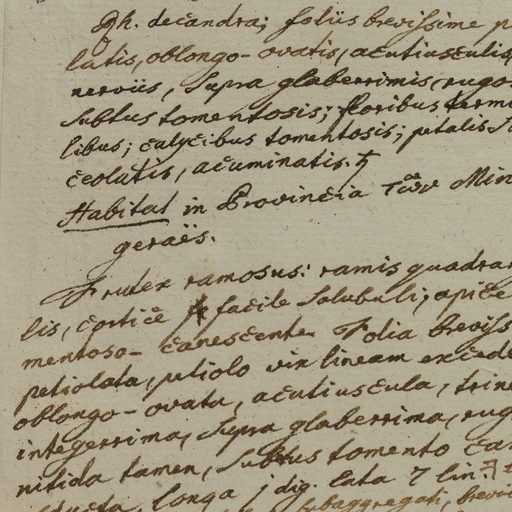 Rh. decandra; foliis brevissime p
latis, oblongo-ovatis, acutiusculis,
nerviis, supra glaberrimis, rugo
subtus tomentosis; floribus termi
libus; calycibus tomentosis; petalis
ceolatis, acuminatis. ♄
Habitat in Provincia Min
geraës.
Frutex ramosus: ramis quadran
lis, cortice facile solubuli; apice
mentoso-canescente. Folia breviss
petiolata, petiolo vix lineam excede
oblongo-ovata, acutiuscula, trine
integerrima, supra glaberrima, rug
nitida tamen, subtus tomento can
longa 1 dig. lata 7 lin.
subaggregati, brevi